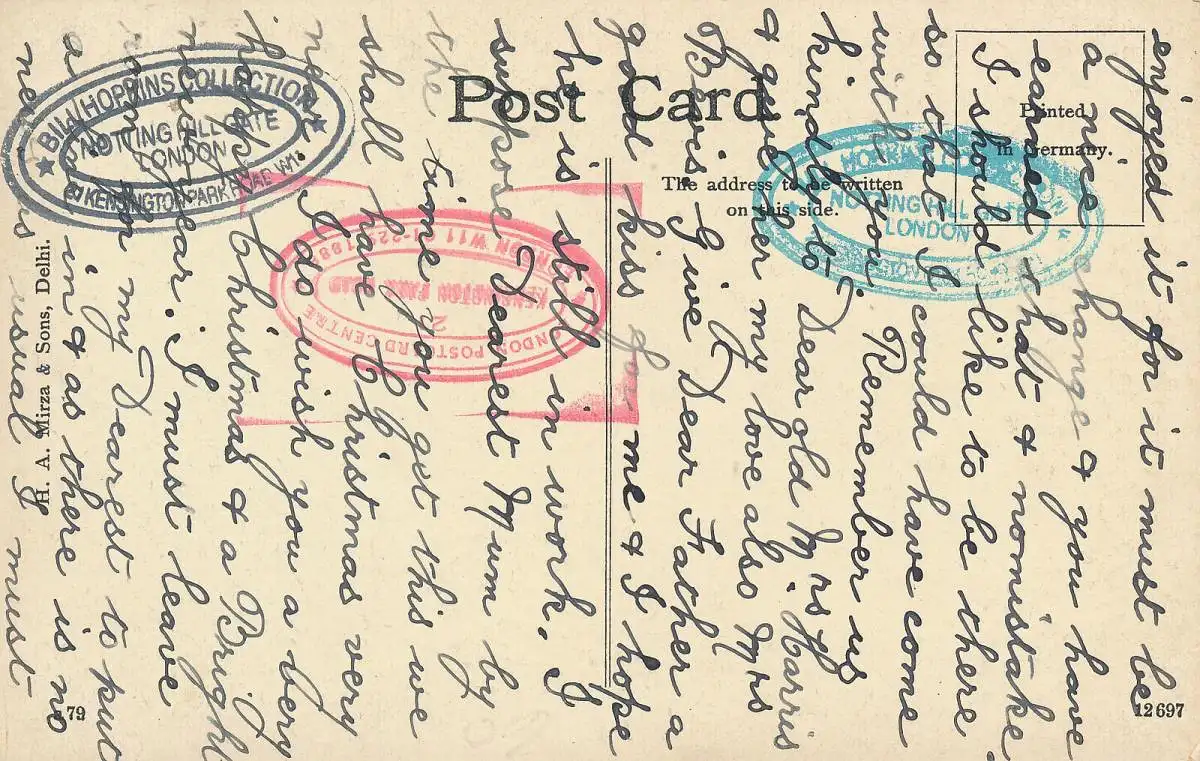 Post Card
Printed
in Germany.
The address to be written
on this side.
enjoyed it for it must be
a nice change & you have
earned that & nomistake
I should like to be there
so that I could have come
with you. Remember us
kindly to Dear old Mrs Harris
& give her my love also Mrs
Bevis. Give Dear Father a
good kiss for me & I hope
he is still in work. I
suppose Dearest Mum by
the time you get this we
shall have Christmas very
near I do wish you a very
happy Christmas & a Bright
new year. I must leave
my Dearest to put
a line in & as there is no
news as usual I must
H. A. Mirza & Sons, Delhi.
79
12697
HOPPINS COLLECTION
NOTTING HILL GATE
LONDON
KENSINGTON PARK ROAD W11
LONDON POSTCARD CENTRE
2
KENSINGTON PARK ROAD
LONDON W11
NOTTING HILL GATE
LONDON